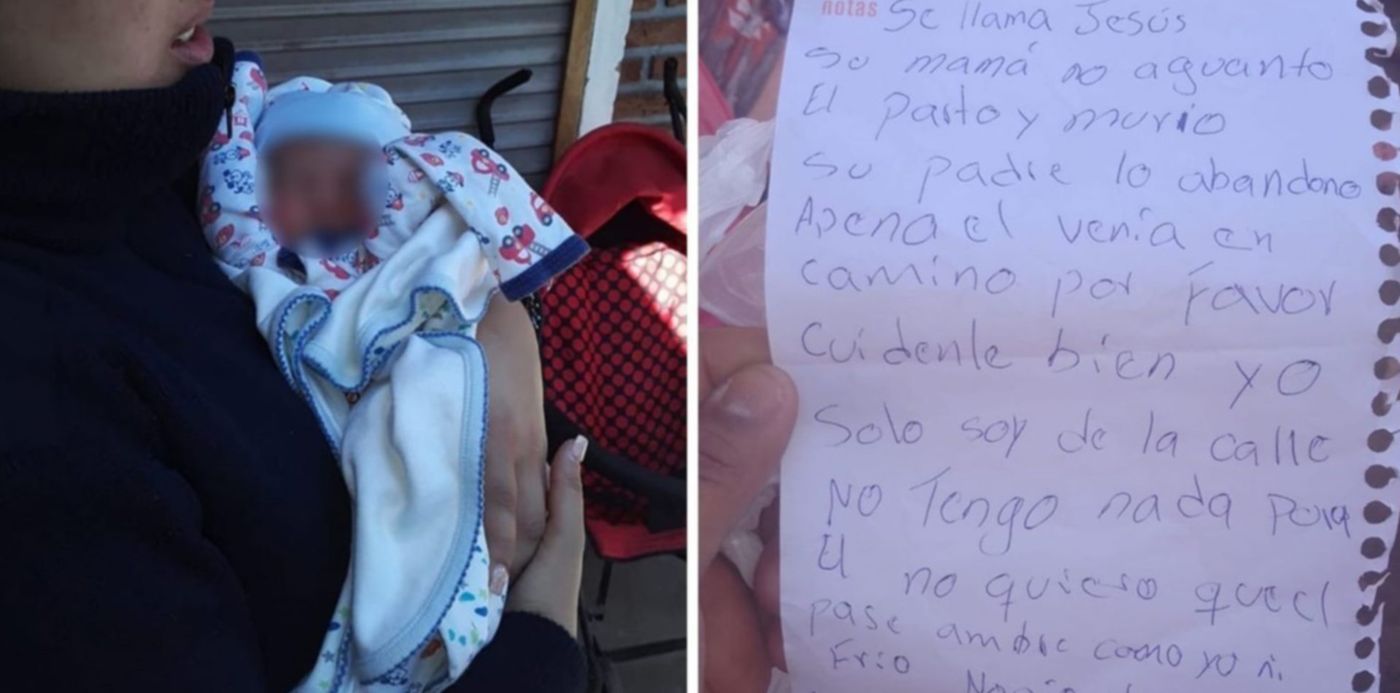 notas Se llama Jesús
su mamá no aguanto
El parto y murio
su padre lo abandono
Apena el venía en
camino por Favor
Cuidenle bien yo
Solo soy de la calle
No Tengo nada para
El no quiero que el
pase ambre como yo ni
Frio